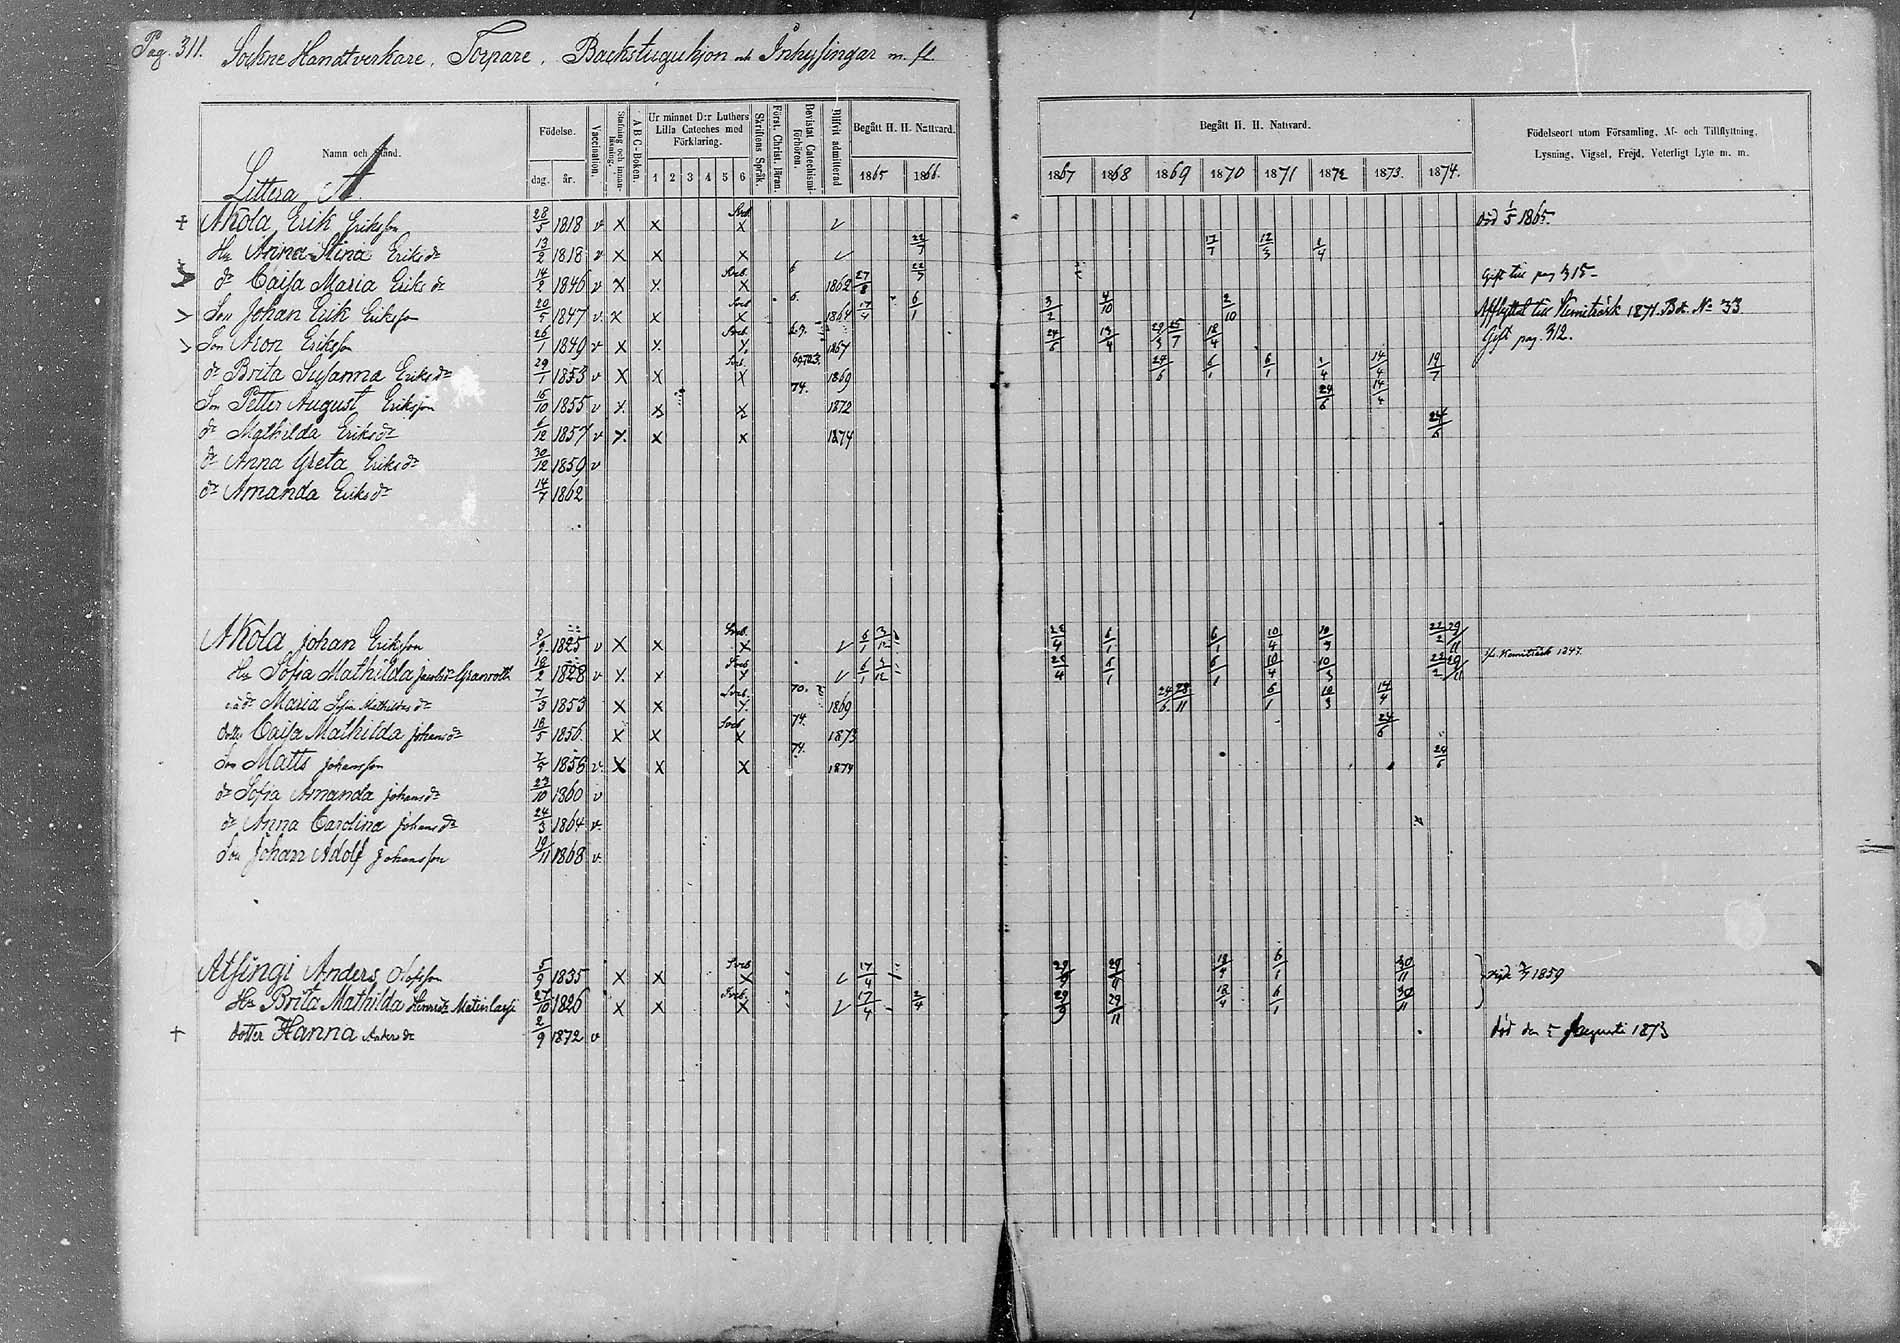 Pag. 311. Sockne Handtverkare, Torpare, Backstuguhjon och Inhysingar m. fl.
Namn och Stånd.
Födelse.
dag. år.
Vaccination.
Stafning och innanläsning.
ABC-Boken.
Ur minnet D:r Luthers Lilla Cateches med Förklaring.
1 2 3 4 5 6
Skriftens Språk.
Först. Christ. läran.
Bevistat Catechismiförhören.
Blifvit admitterad
Begått H. H. Nattvard.
1865 1866.
Begått H. H. Nattvard.
1867 1868 1869 1870 1871 1872 1873. 1874.
Födelseort utom Församling, Af- och Tillflyttning,
Lysning, Vigsel, Frejd, Veterligt Lyte m. m.
Littera A.
‡ Akola Erik Eriksson 28/5 1818 v x x Sveb. x v död 1/5 1865.
Hu Anna Stina Eriksdr 13/2 1818 v x x x v 22/7 17/7 12/3 1/4
> dr Caisa Maria Eriksdr 14/2 1846 v x x Sveb. x 6 1862 27/8 22/7 Gift till pag 315
> Son Johan Erik Eriksson 20/5 1847 v x x Sveb x 6. 1864 17/4 6/1 3/2 4/10 2/10 Afflyttat till Kemiträsk 1871. Bet. No 33
> Son Aron Eriksson 26/1 1849 v x x Sveb. x 69. 1867 24/6 13/4 29/3 25/7 18/4 Gift pag. 312.
dr Brita Susanna Eriksdr 29/1 1853 v x x Sveb. x 1869 24/6 6/1 6/1 1/4 14/4 19/7
Son Petter August Eriksson 16/10 1855 v x x x 74. 1872 24/6 14/4
dr Mathilda Eriksdr 6/12 1857 v x x x 1874 24/6
dr Anna Greta Eriksdr 30/12 1859 v
dr Amanda Eriksdr 14/7 1862
Akola Johan Eriksson 9/9 1825 v x x Sveb. x v 6/1 3/12 25/4 6/1 6/1 10/4 10/3 22/2 29/11
Hu Sofia Mathilda Jacobsdr Granroth 18/2 1828 v x x Sveb x v 6/1 3/12 25/4 6/1 6/1 10/4 10/3 22/2 29/11 Kemiträsk 1847.
dr Maria Sofia Mathildas dr 7/3 1853 x x Sveb. x 70. 1869 24/6 28/11 6/1 10/3 14/4
dotter Caisa Mathilda Johansdr 18/5 1856 x x Sveb x 74. 1873 24/6
Son Matts Johansson 7/5 1856 v x x x 74. 1874 24/6
dr Sofia Amanda Johansdr 23/10 1860 v
dr Anna Carolina Johansdr 24/3 1864 v.
Son Johan Adolf Johansson 19/11 1868 v.
Atsingi Anders Olofsson 5/9 1835 x x Sveb x v 17/4 29/9 29/11 18/4 6/1 30/11 1859
Hu Brita Mathilda Henricsdr Matinlassi 27/10 1826 x x Sveb. x v 17/4 2/4 29/9 29/11 18/4 6/1 30/11
† dotter Hanna Andersdr 2/9 1872 v död den 5 Augusti 1873